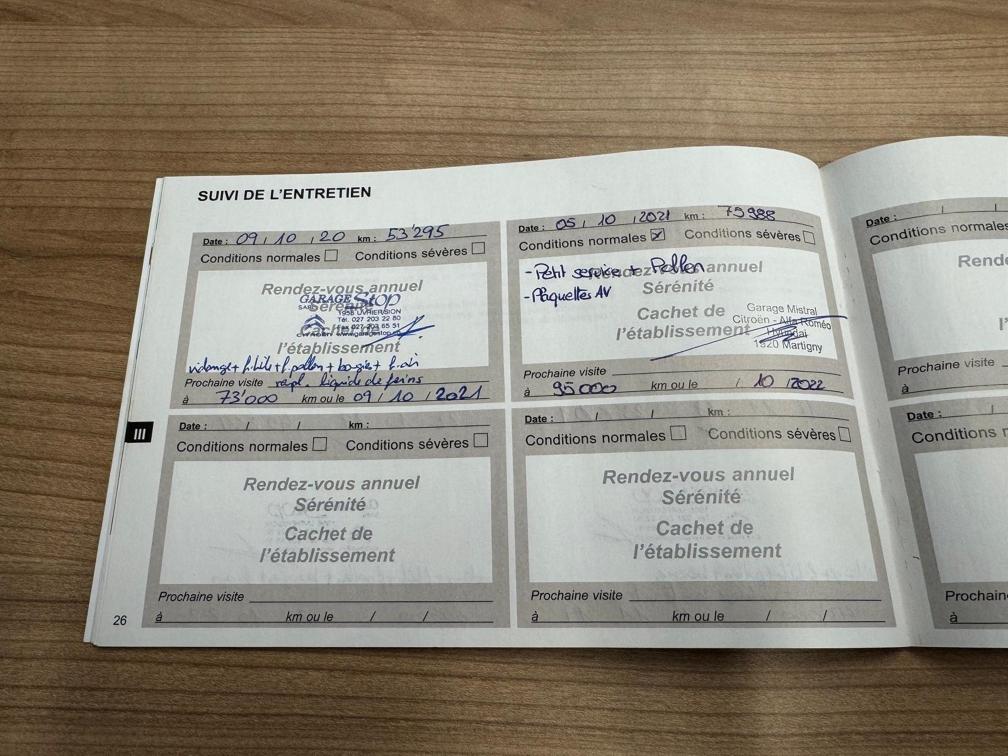 SUIVI DE L'ENTRETIEN
Date : 09 / 10 / 20 km : 53'295
Conditions normales Conditions sévères
Rendez-vous annuel
Sérénité
GARAGE Stop
SARL
1958 UVRIER/SION
Tél. 027 203 22 80
Fax 027 203 65 51
CITROËN
Cachet de
l'établissement
vidange + f. hile + f. pollen + bougies + f. air
Prochaine visite rempl. liquide de freins
à 73'000 km ou le 09 / 10 / 2021
Date : 05 / 10 / 2021 km : 75988
Conditions normales Conditions sévères
- Petit service + Pollen
Rendez-vous annuel
- Plaquettes AV
Sérénité
Cachet de
l'établissement
Garage Mistral
Citroën - Alfa Roméo
Hyundai
1920 Martigny
Prochaine visite
à 95000 km ou le / 10 / 2022
Date : / / km :
Conditions normales Conditions sévères
Rendez-vous annuel
Sérénité
Cachet de
l'établissement
Prochaine visite
à km ou le / /
Date : / / km :
Conditions normales Conditions sévères
Rendez-vous annuel
Sérénité
Cachet de
l'établissement
Prochaine visite
à km ou le / /
Date : /
Conditions normales
Rende
à
Date : /
Conditions n
Prochain
à
III
26